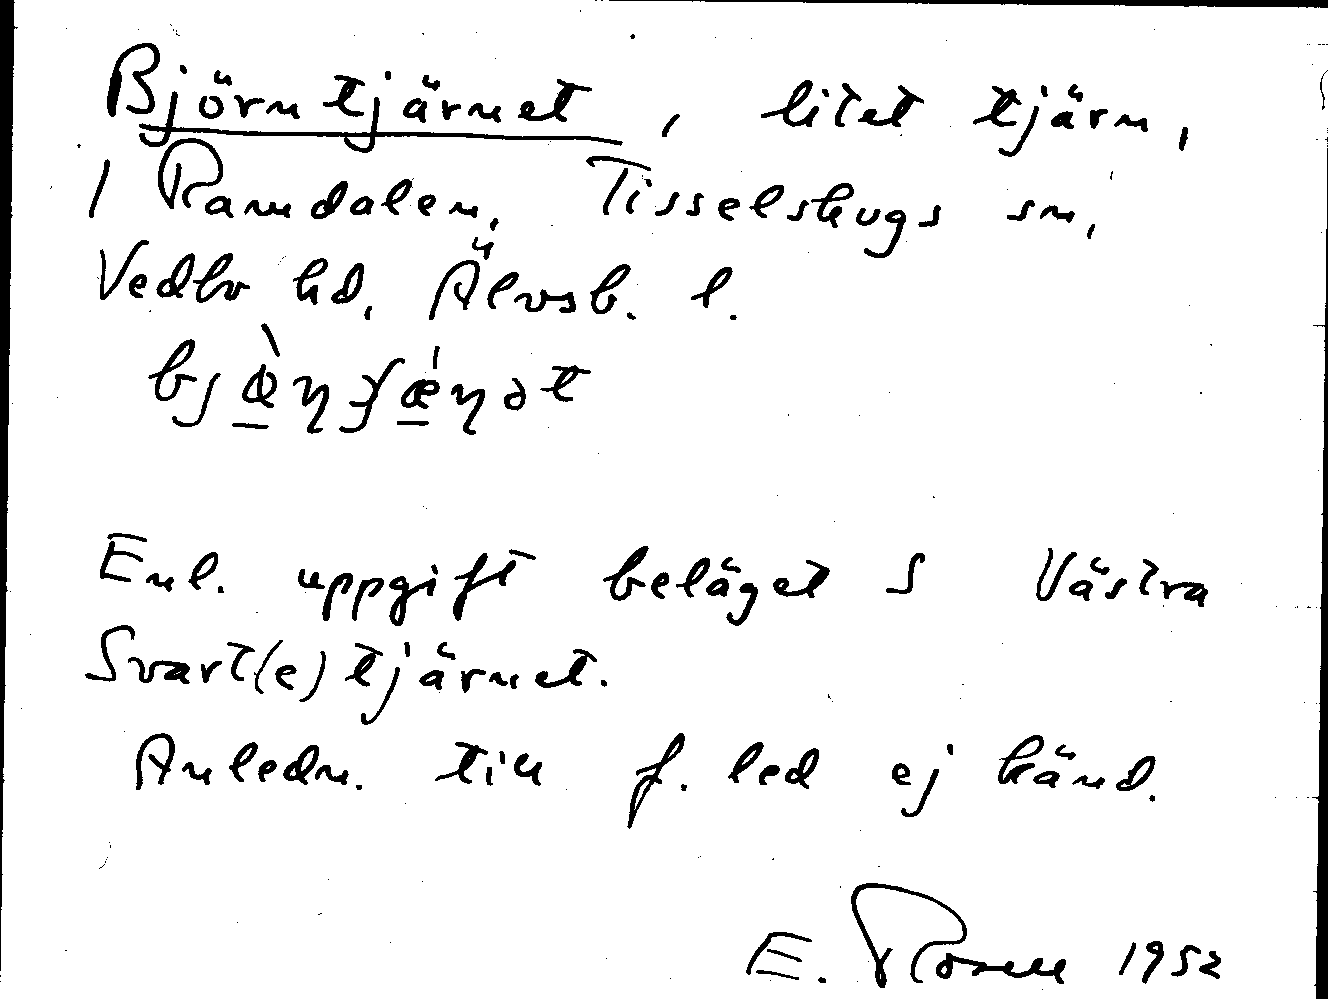 Björntjärnet, litet tjärn,
1 Ramdalen, Tisselskogs sn,
Vedbo hd, Älvsb. l.
Enl. uppgift beläget S Västra
Svart(e)tjärnet.
Anledn. till f. led ej känd.
E. Rosell 1952